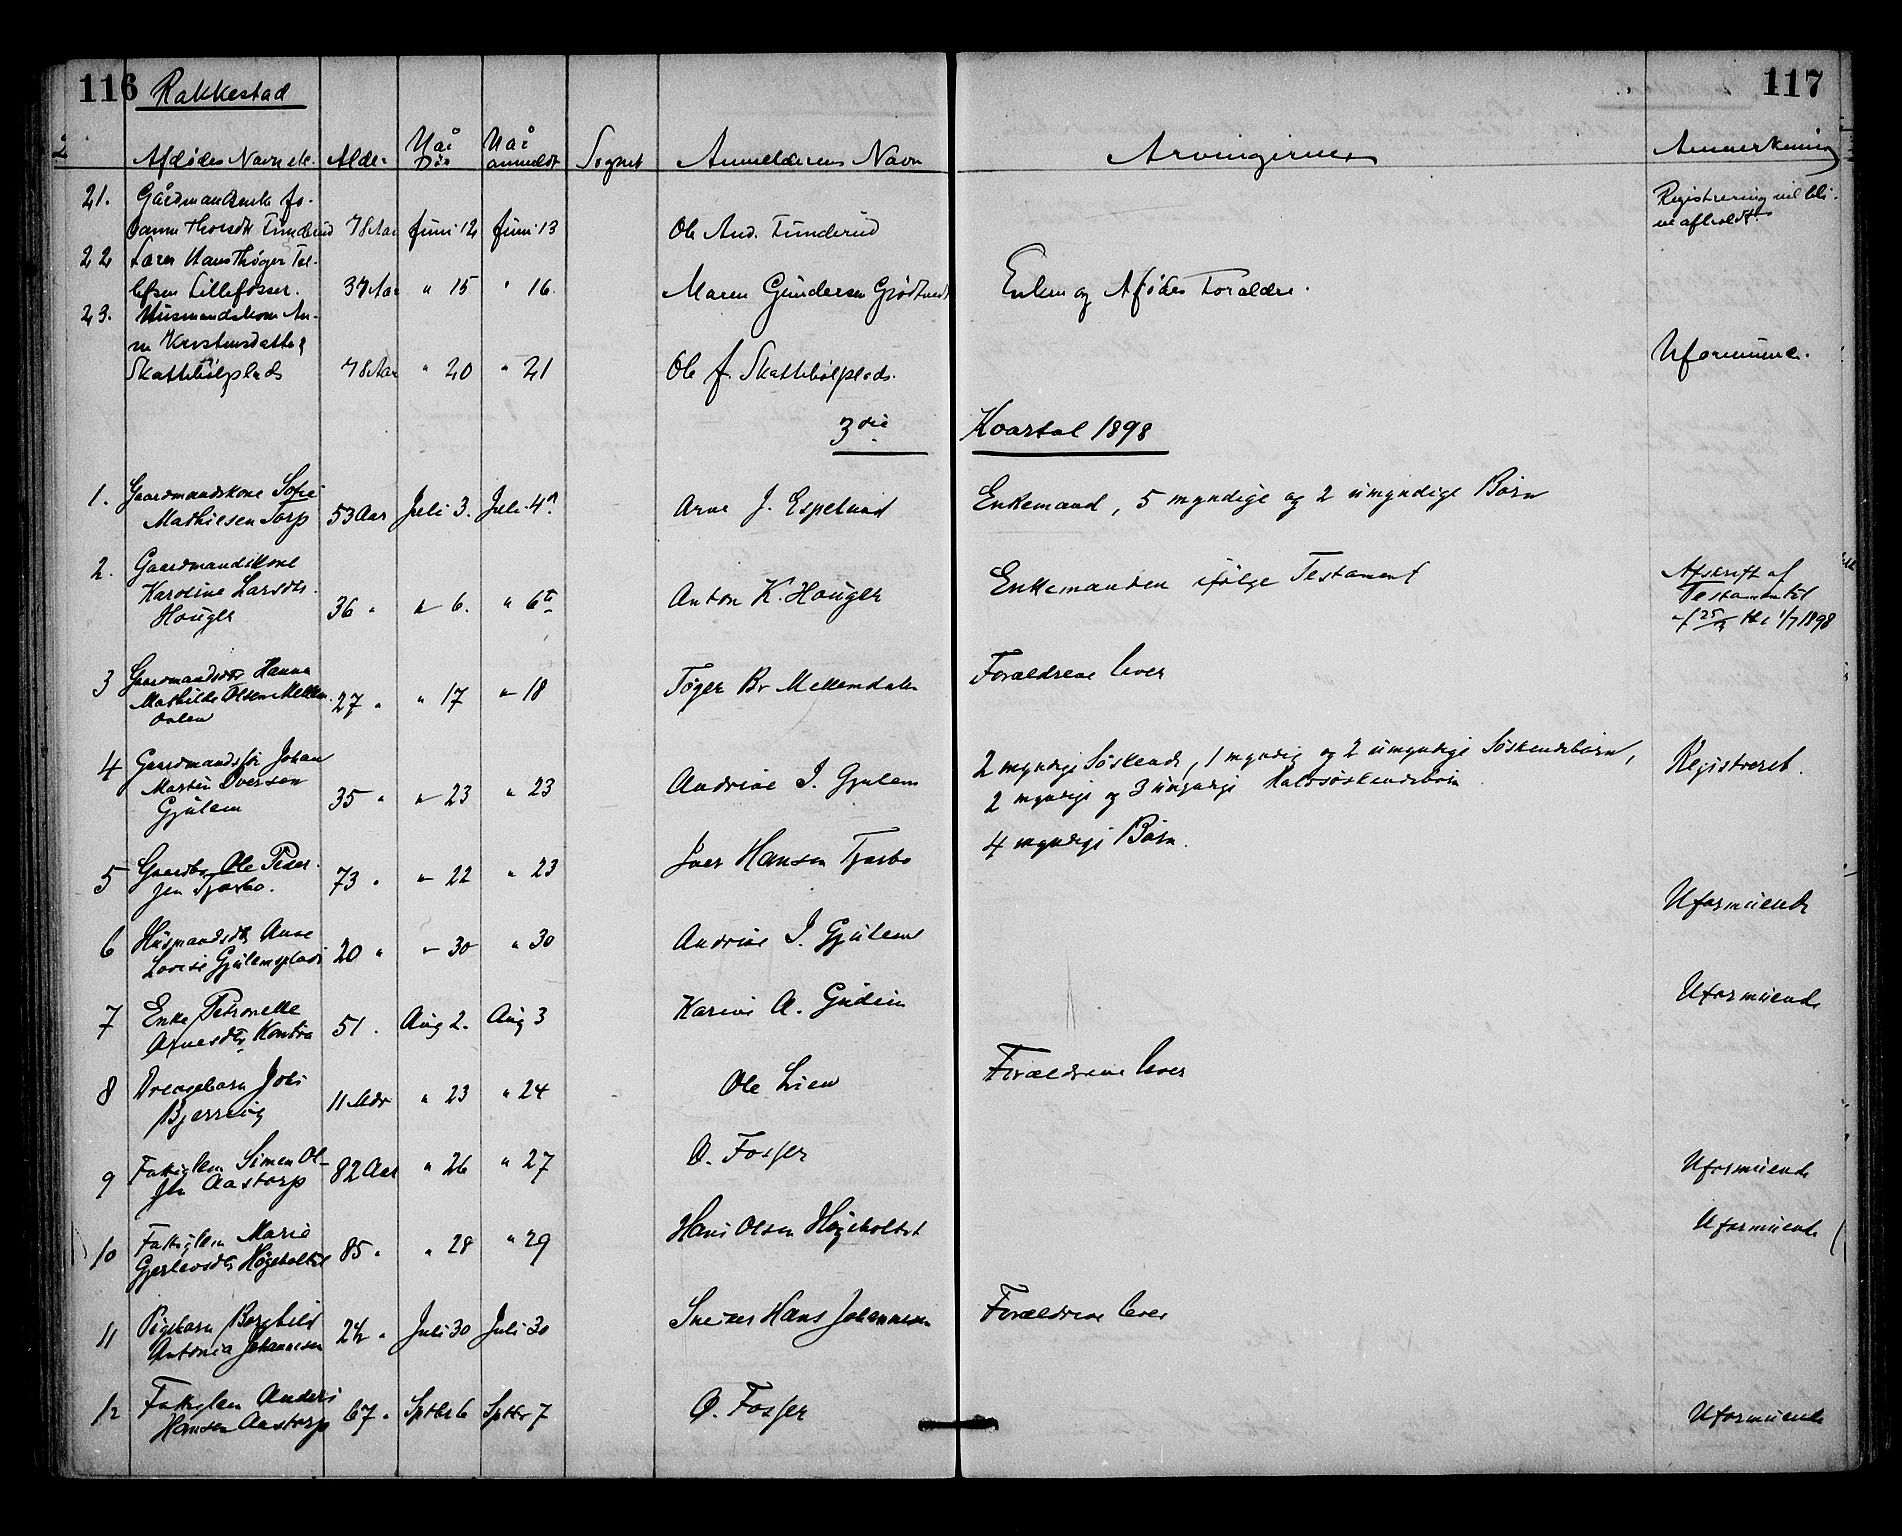 116 Rakkestad 117
Afdødes Navn etc. Alder Når Død Når anmeldt Sognet Anmelderens Navn Arvingerne Anmerkning
21. Gårdmandsenke Jo-
Registrering vil bli-
hanne Thorsdtr Finderud 78 Aar Juni 12 Juni 13 Ole And. Finderud
ve afholdt.
22 Lærer Hans Thøger Tel-
lefsen Lillefosser. 37 Aar " 15 " 16. Maren Gundersen Enken og Afdødes Forældre.
23. Husmandskone An-
ne Kristensdatter
Skattebølplads 78 Aar " 20 " 21 Ole J. Skattebølplads. Uformuende.
3die Kvartal 1898
1. Gaardmandskone Sofie
Mathiesen Torp 53 Aar Juli 3. Juli 4. Arne J. Espelund Enkemand, 5 myndige og 2 umyndige Børn
2. Gaardmandskone
Karoline Larsdtr.
Houger 36 " " 6. " 6t Anton K. Houger Enkemanden ifølge Testament
Afskrift af
Testamentet
af 25/3 1/7 1898
3 Gaardmandsdtr Hanna
Mathilde Olsen Mellem-
dalen 27 " " 17 " 18 Tøger Br Mellemdalen Forældrene lever
4 Gaardmandsfør Johan
Martin Iversen
Gjulem 35 " " 23 " 23 Andrine I. Gjulem 2 myndige Søskende, 1 myndig og 2 umyndige Søskendebørn,
2 myndige og 3 umyndige Halvsøskendebørn Registreret.
5 Gaardbr. Ole Peder-
sen Tjærbo. 73 " " 22 " 23 Iver Hansen Tjærbo 4 myndige Børn.
6 Husmandsdtr Anne
Lovise Gjulemsplads 20 " " 30 " 30 Andrine I. Gjulem Uformuende
7 Enke Petronelle
Arnesdtr. 51. Aug 2. Aug 3 Karine A. Gudim Uformuende
8 Drengebarn
Bjerreng 11 Mdr " 23 " 24 Ole Lien Forældrene lever
9 Fattiglem Simen Ol-
sen Aastorp 82 Aar " 26 " 27 O. Fosser Uformuende
10 Fattiglem Marie
Gjerlovsdtr. Høgeholtet 85 " " 28 " 29 Hans Olsen Høgeholtet Uformuende
11 Pigebarn Borghild
Antonia Johannesen 24 " Juli 30 Juli 30 Snedker Hans Johannesen Forældrene lever
12 Fattiglem Anders
Hansen Aastorp 67 " Sptbr 6 Sptbr 7 O. Fosser Uformuende